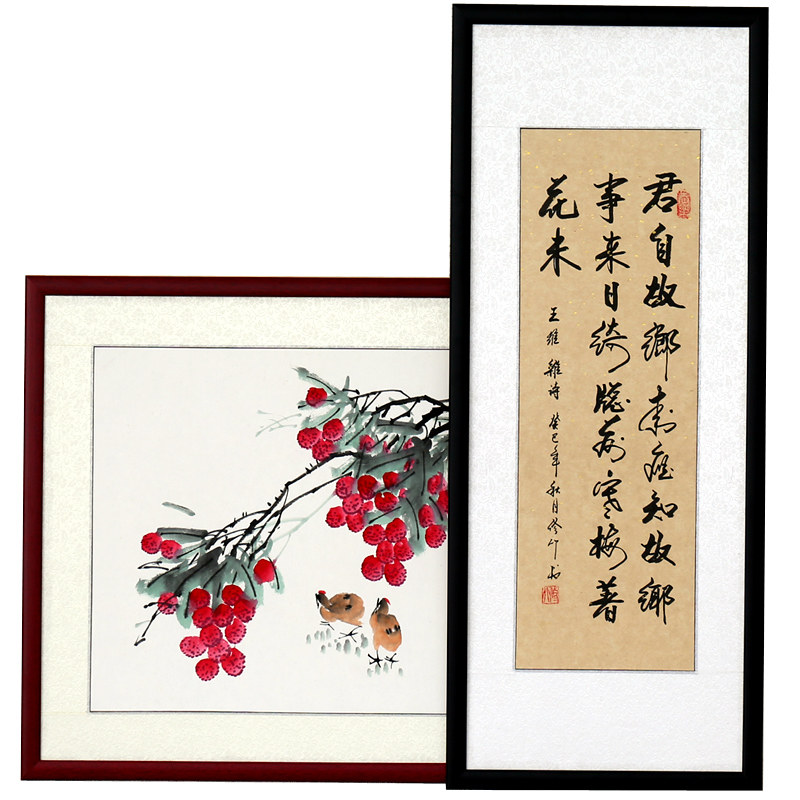 君自故鄉来應知故鄉
事来日綺窓前寒梅著
花未
王維雜诗 癸巳年秋月